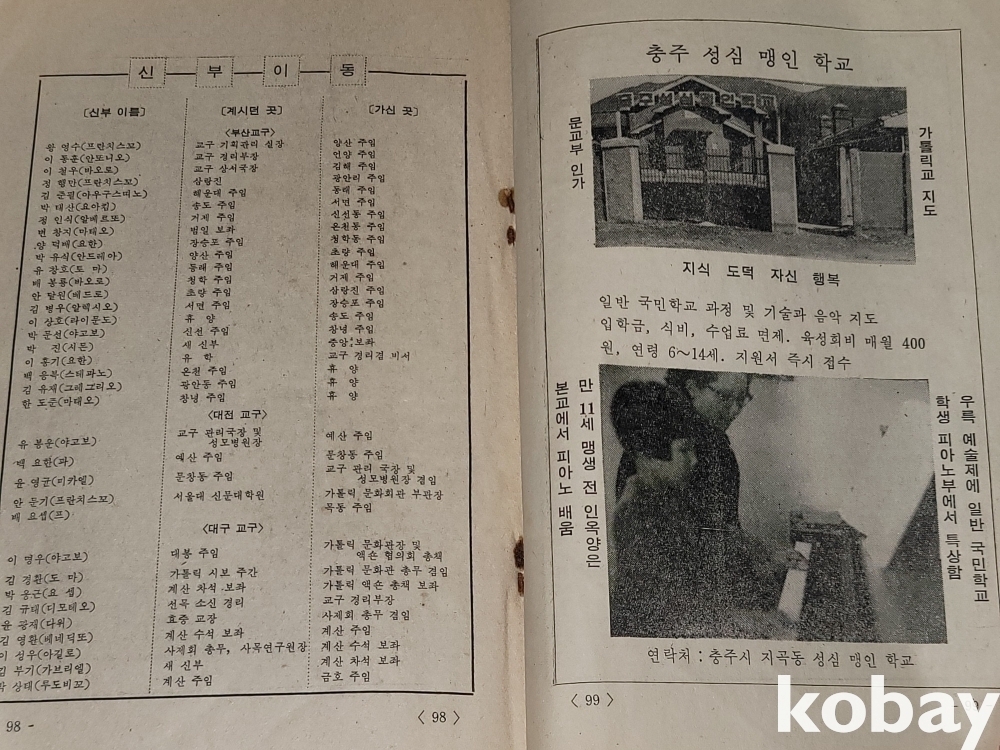 신 부 이 동
[신부 이름] [계시던 곳] [가신 곳]
<부산교구>
왕 영수(프란치스꼬) 교구 기획관리 실장 양산 주임
이 동훈(안또니오) 교구 경리부장 언양 주임
이 철우(바오로) 교구 상서국장 김해 주임
정 행만(프란치스꼬) 삼랑진 광안리 주임
김 준필(아우구스띠노) 해운대 주임 동래 주임
박 태산(요아킴) 송도 주임 서면 주임
정 인식(알베르또) 거제 주임 신선동 주임
변 창지(마태오) 범일 보좌 온천동 주임
양 덕배(요한) 장승포 주임 청학동 주임
박 유식(안드레아) 양산 주임 초량 주임
유 창호(도 마) 동래 주임 해운대 주임
배 봉룡(바오로) 청학 주임 거제 주임
안 달원(베드로) 초량 주임 삼랑진 주임
김 병우(알렉시오) 서면 주임 장승포 주임
이 상호(라이문도) 휴 양 송도 주임
박 문선(야고보) 신선 주임 창녕 주임
박 진(시몬) 새 신부 중앙 보좌
이 홍기(요한) 유 학 교구 경리겸 비서
백 응복(스테파노) 온천 주임 휴 양
김 유재(그레고리오) 광안동 주임 휴 양
한 도준(마태오) 창녕 주임 휴 양
<대전 교구>
유 봉운(야고보) 교구 관리국장 및 성모병원장 예산 주임
백 요한(과) 예산 주임 문창동 주임
윤 영균(미카엘) 문창동 주임 교구 관리 국장 및 성모병원장 겸임
안 둔기(프란치스꼬) 서울대 신문대학원 가톨릭 문화회관 부관장
배 요셉(프) 목동 주임
<대구 교구>
이 명우(야고보) 대봉 주임 가톨릭 문화관장 및 액숀 협의회 총책
김 경환(도 마) 가톨릭 시보 주간 가톨릭 문화관 총무 겸임
박 응근(요 셉) 계산 차석 보좌 가톨릭 액숀 총책 보좌
김 규태(디모테오) 선목 소신 경리 교구 경리부장
윤 광재(다위) 효중 교장 사제회 총무 겸임
김 영환(베네딕또) 계산 수석 보좌 계산 주임
이 성우(아길로) 사제회 총무, 사목연구원장 계산 수석 보좌
김 부기(가브리엘) 새 신부 계산 차석 보좌
상태(루도비꼬) 계산 주임 금호 주임
98 -
< 98 >
충주 성심 맹인 학교
문교부 인가
가톨릭교 지도
지식 도덕 자신 행복
일반 국민학교 과정 및 기술과 음악 지도
입학금, 식비, 수업료 면제. 육성회비 매월 400
원, 연령 6~14세. 지원서 즉시 접수
만 11세 맹생 전 인옥양은
본교에서 피아노 배움
우륵 예술제에 일반 국민학교
학생 피아노부에서 특상함
연락처 : 충주시 지곡동 성심 맹인 학교
< 99 >
kobay